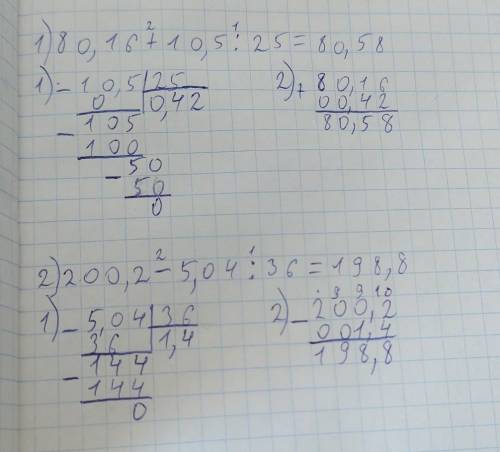 1) 80,16 + 10,5 : 25 = 80,58
2 1
1) - 10,5 | 25
0 0,42
- 105
100
- 50
50
0
2) + 80,16
00,42
80,58
2) 200,2 - 5,04 : 36 = 198,8
2 1
1) - 5,04 | 36
36 1,4
- 144
144
0
2) - 200,2
9 9 10
001,4
198,8